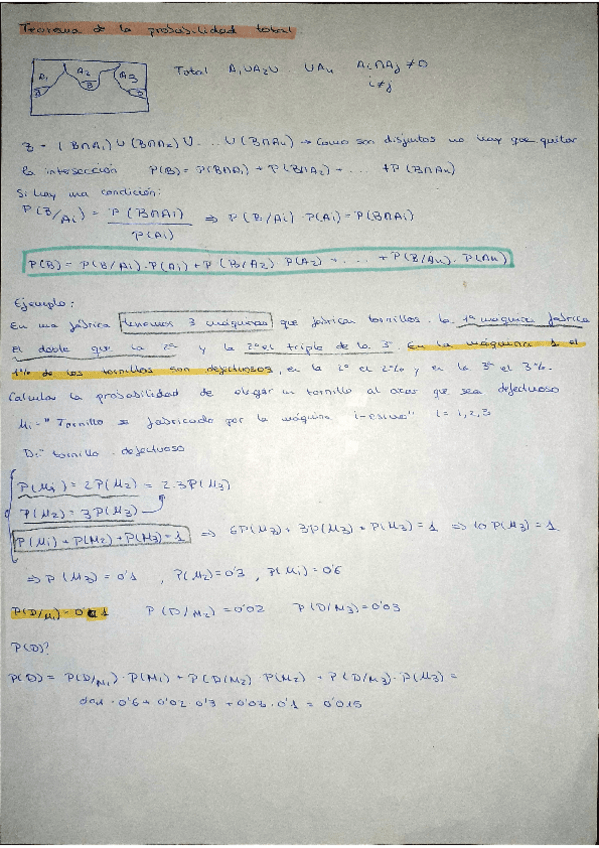 Teorema de la probabilidad total
A₁ A₂ A₃
B
Total A₁UA₂U UAn Ai∩Aj ≠ 0
i≠j
B = (B∩A₁) U (B∩A₂) U ... U (B∩An) → Como son disjuntos no hay que quitar
la intersección P(B) = P(B∩A₁) + P(B∩A₂) + ... + P(B∩An)
Si hay una condición:
P(B/Ai) = P(B∩Ai) / P(Ai) ⇒ P(B/Ai) · P(Ai) = P(B∩Ai)
P(B) = P(B/A₁) · P(A₁) + P(B/A₂) · P(A₂) + ... + P(B/An) · P(An)
Ejemplo:
En una fábrica tenemos 3 máquinas que fabrican tornillos. La 1ª máquina fabrica
el doble que la 2ª y la 2ª el triple de la 3ª. En la máquina 1 el
1% de los tornillos son defectuosos, en la 2ª el 2% y en la 3ª el 3%.
Calcular la probabilidad de elegir un tornillo al azar que sea defectuoso
Mi = " Tornillo se fabricado por la máquina i-esima" i = 1,2,3
D: " tornillo defectuoso
P(M₁) = 2P(M₂) = 2·3P(M₃)
P(M₂) = 3P(M₃)
P(M₁) + P(M₂) + P(M₃) = 1 ⇒ 6P(M₃) + 3P(M₃) + P(M₃) = 1 ⇒ 10P(M₃) = 1
⇒ P(M₃) = 0'1 , P(M₂) = 0'3 , P(M₁) = 0'6
P(D/M₁) = 0'01 P(D/M₂) = 0'02 P(D/M₃) = 0'03
P(D)?
P(D) = P(D/M₁) · P(M₁) + P(D/M₂) · P(M₂) + P(D/M₃) · P(M₃) =
0'01 · 0'6 + 0'02 · 0'3 + 0'03 · 0'1 = 0'015